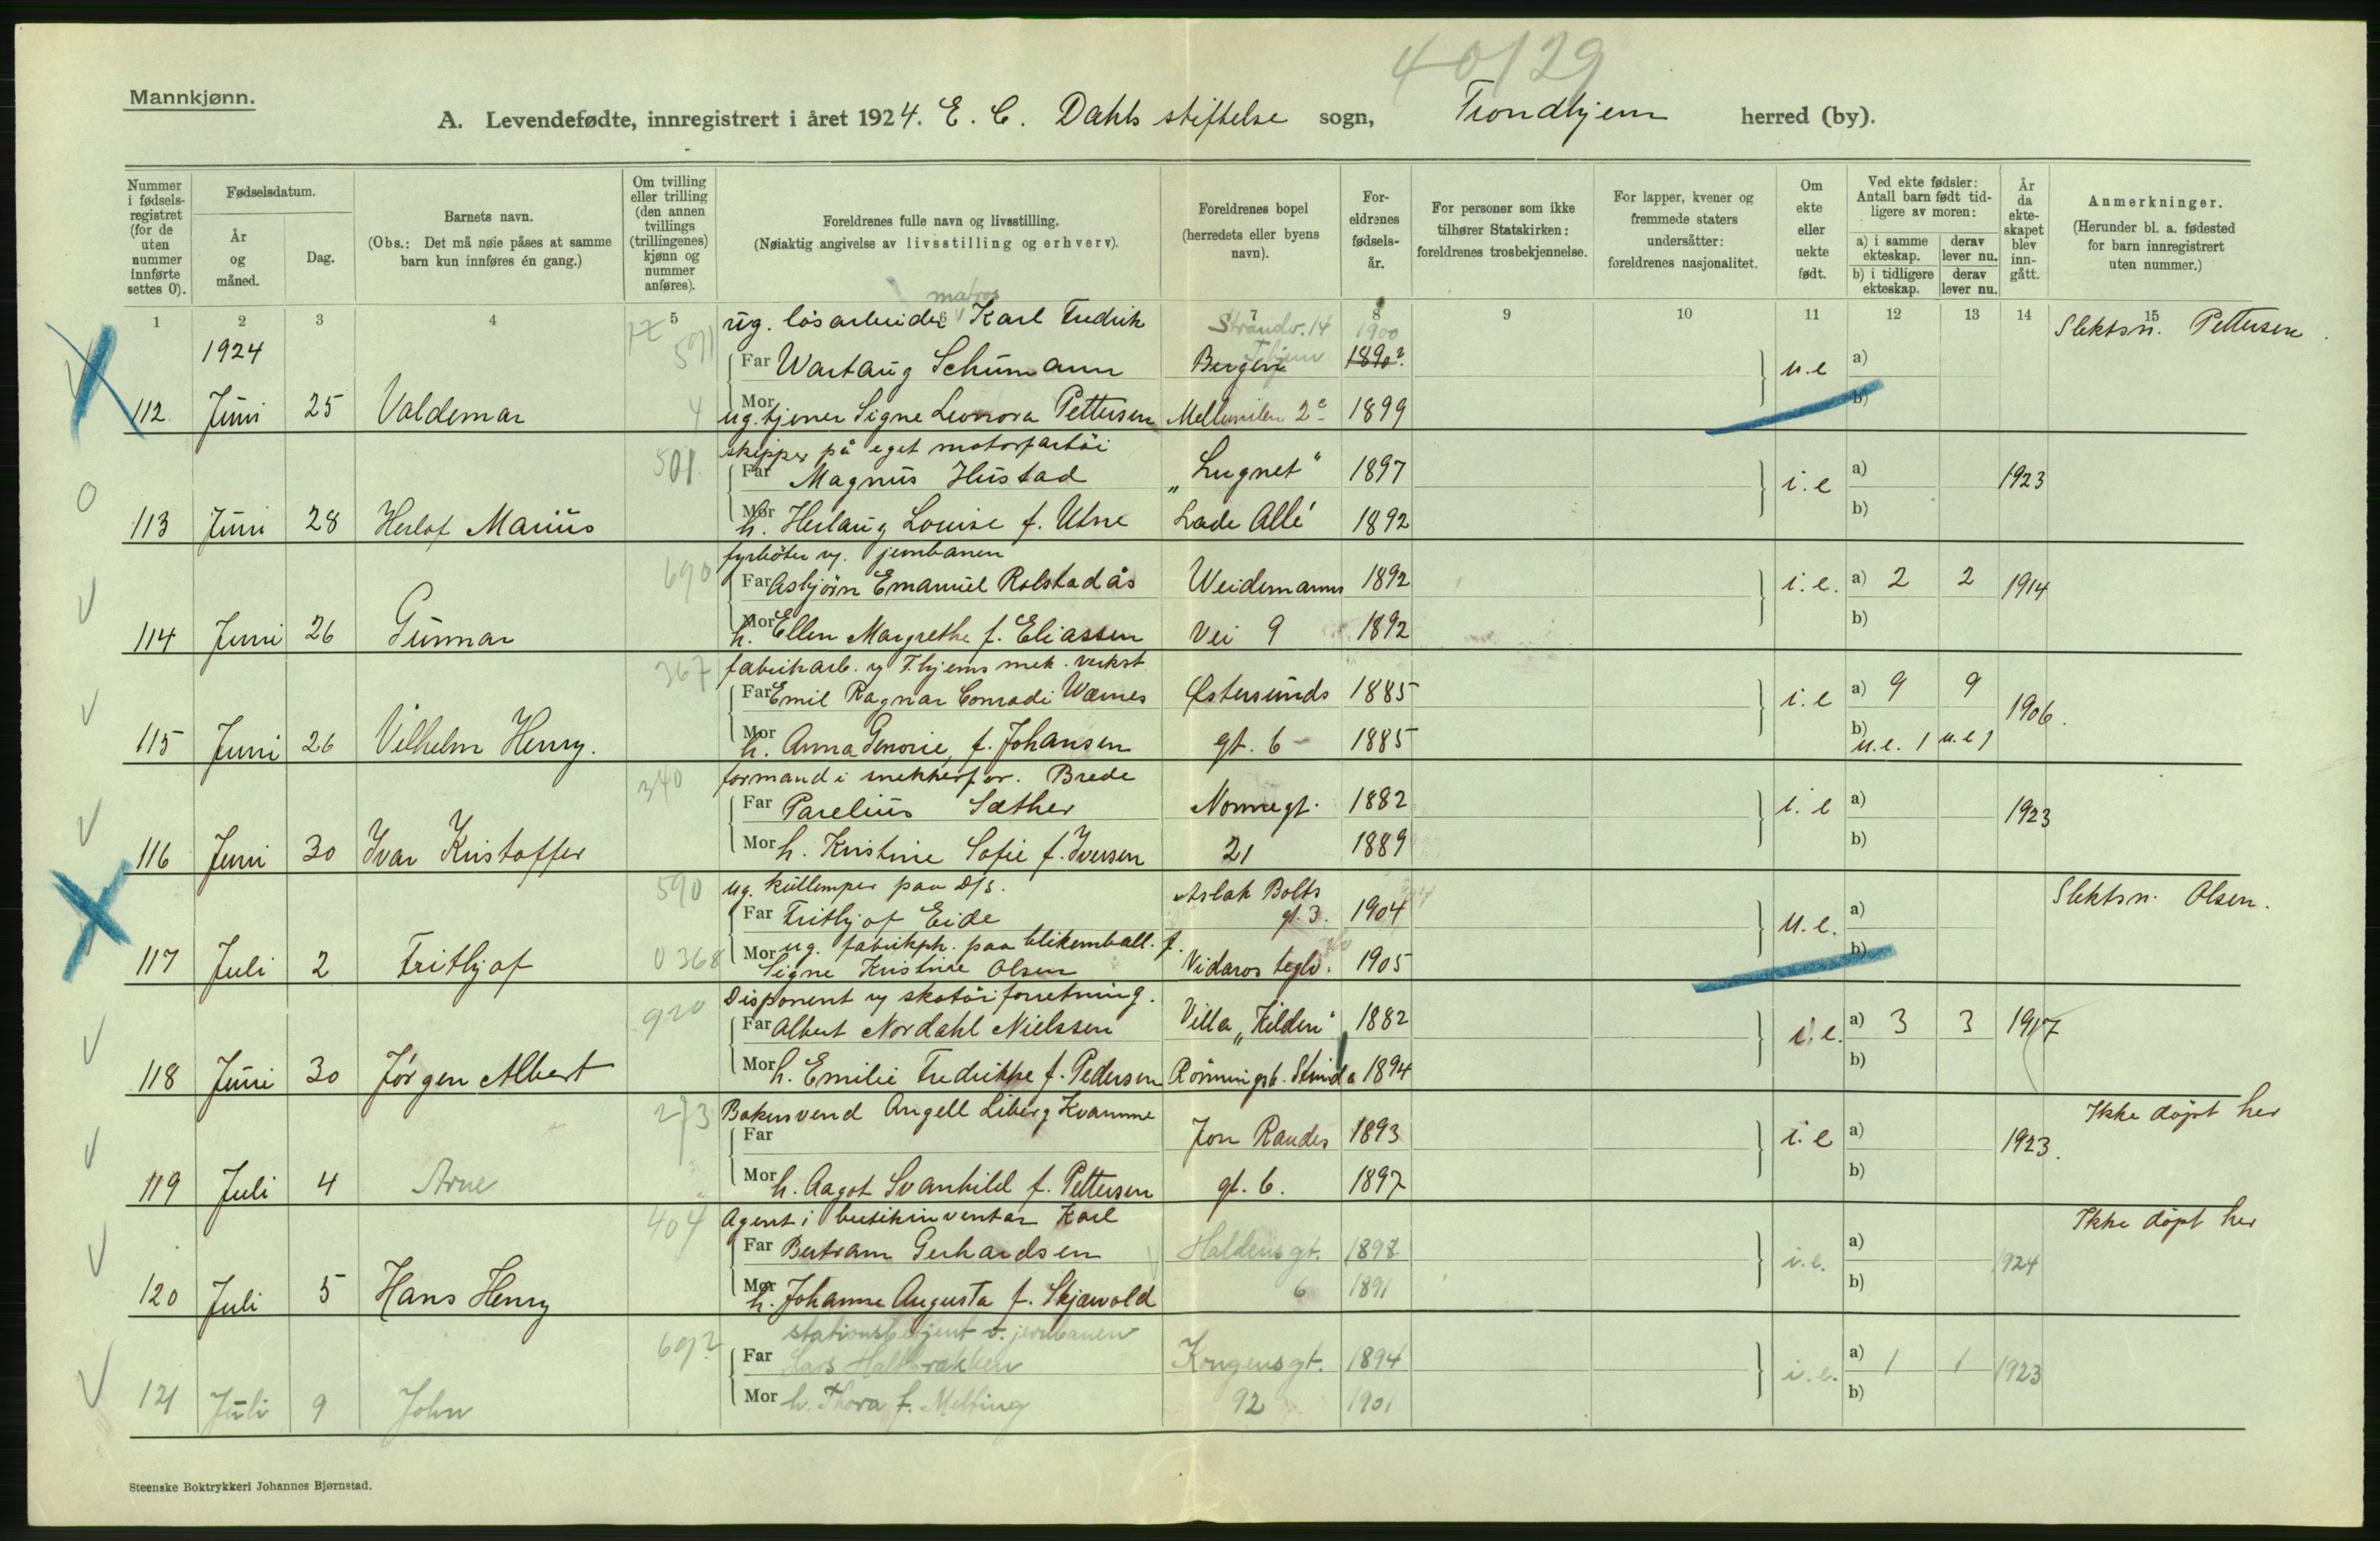 40/29
Mannkjønn.
A. Levendefødte, innregistrert i året 1924. E. C. Dahls stiftelse sogn, Trondhjem herred (by).
Nummer i fødsels-registret (for de uten nummer innførte settes 0).
Fødselsdatum.
År og måned.
Dag.
Barnets navn.
(Obs.: Det må nøie påses at samme barn kun innføres én gang.)
Om tvilling eller trilling (den annen tvillings (trillingenes) kjønn og nummer anføres).
Foreldrenes fulle navn og livsstilling.
(Nøiaktig angivelse av livsstilling og erhverv).
Foreldrenes bopel (herredets eller byens navn).
For-eldrenes fødsels-år.
For personer som ikke tilhører Statskirken: foreldrenes trosbekjennelse.
For lapper, kvener og fremmede staters undersåtter: foreldrenes nasjonalitet.
Om ekte eller uekte født.
Ved ekte fødsler: Antall barn født tid-ligere av moren:
a) i samme ekteskap. derav lever nu.
b) i tidligere ekteskap. derav lever nu.
År da ekte-skapet blev inn-gått.
Anmerkninger.
(Herunder bl. a. fødested for barn innregistrert uten nummer.)
1 2 3 4 5 6 7 8 9 10 11 12 13 14 15
matros
ug. løsarbeider Karl Fredrik Strandv. 14 1900 Slektsn. Pettersen
1924 591 Far Wartaug Schumann Bergen Thjem 1890? u.e a)
112 Juni 25 Valdemar 4 Mor ug. tjener Signe Leonora Pettersen Mellemilen 2c 1899 b)
skipper på eget motorfartøi
501 Far Magnus Hustad „Lugnet“ 1897 i.e a) 1923
113 Juni 28 Herlof Marius Mor h. Herlaug Louise f. Utne Lade Allé 1892 b)
fyrbøter v. jernbanen
690 Far Asbjørn Emanuel Rolstadås Weidemanns 1892 i.e. a) 2 2 1914
114 Juni 26 Gunnar Mor h. Ellen Margrethe f. Eliassen Vei 9 1892 b)
367 fabrikarb. v Thjems mek. verkst.
Far Emil Ragnar Conradi Wærnes Østersunds 1885 i.e a) 9 9 1906.
115 Juni 26 Vilhelm Henry. Mor h. Anna Genorie, f. Johansen gt. 6 1885 b) u.e. 1 u.e 1
340 formand i snekkerfor. Brede
Far Parelius Sæther Nonnegt. 1882 i.e a) 1923
116 Juni 30 Ivar Kristoffer Mor h. Kristine Sofie f. Iversen 21 1889 b)
590 ug. kullemper paa D/S. Aslak Bolts Slektsn. Olsen.
Far Frithjof Eide gt. 3. 1904 u.e. a)
0 368 Mor ug. fabrikph. paa blikemball. f. b)
117 Juli 2 Frithjof Signe Kristine Olsen Nidaros teglv. 1905
920 Disponent v skotøiforretning.
Far Albert Nordahl Nielssen Villa „Kilden“ 1882 i.e. a) 3 3 1917
118 Juni 30 Jørgen Albert Mor h. Emilie Fredrikke f. Pedersen Rönningsb. Strinda 1894 b)
273 Bakersvend Angell Liberg Kvamme Ikke døpt her
Far Jon Raudes 1893 i.e a) 1923.
119 Juli 4 Arne Mor h. Aagot Svanhild f. Pettersen gt. 6. 1897 b)
404 Agent i butikinventar Karl Ikke døpt her
Far Bertram Gerhardsen Haldens gt. 1898 i.e. a) 1924
120 Juli 5 Hans Henry Mor h. Johanne Augusta f. Skjævold 6 1891 b)
692 stationsbetjent v. jernbanen
Far Lars Hallbrækken Krugens gt. 1894 i.e. a) 1 1 1923
121 Juli 9 John Mor h. Thora f. Melting 92 1901 b)
Steenske Boktrykkeri Johannes Bjørnstad.